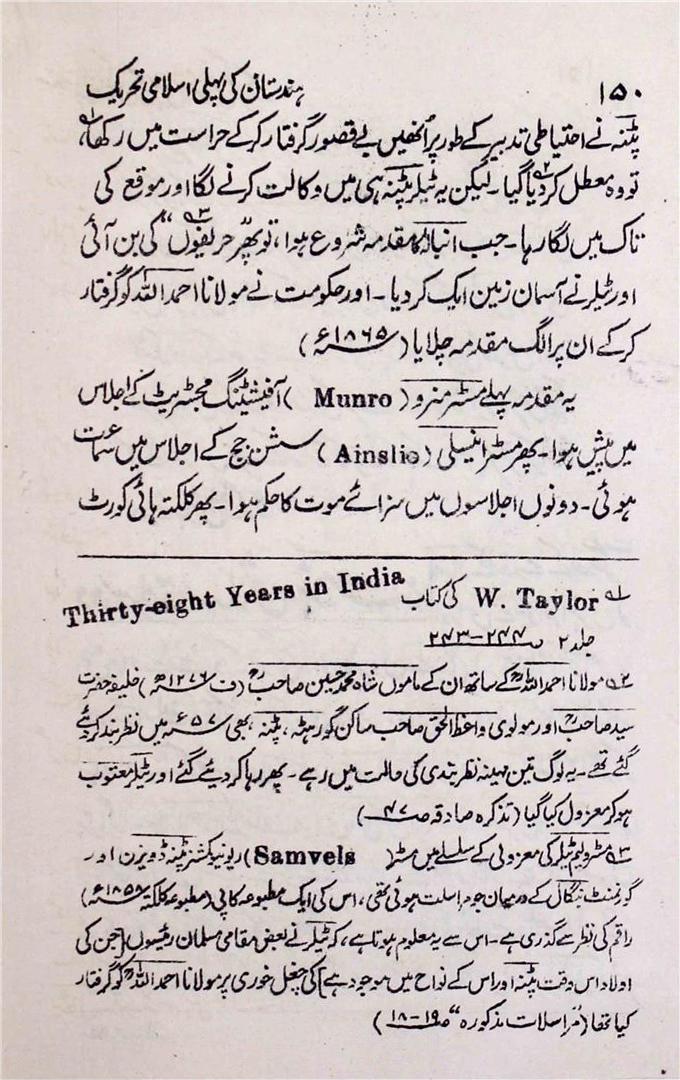 ۱۵۰ ہندستان کی پہلی اسلامی تحریک
پٹنہ نے احتیاطی تدبیر کے طور پر اُنھیں بے قصور گرفتار کر کے حراست میں رکھا،۱؎
تو وہ معطل کر دیا گیا۲؎۔ لیکن یہ ٹیلر پٹنہ ہی میں وکالت کرنے لگا اور موقع کی
تاک میں لگا رہا۔ جب انبالہ کا مقدمہ شروع ہوا، تو پھر حریفوں۳؎ کی بن آئی
اور ٹیلر نے آسمان زمین ایک کر دیا۔ اور حکومت نے مولانا احمد اللہ کو گرفتار
کر کے ان پر الگ مقدمہ چلایا (۱۸۶۵ء)
یہ مقدمہ پہلے مسٹر منرو (Munro) آفیشٹنگ مجسٹریٹ کے اجلاس
میں پیش ہوا۔ پھر مسٹر اینسلی (Ainslie) سشن جج کے اجلاس میں سماعت
ہوئی۔ دونوں اجلاسوں میں سزائے موت کا حکم ہوا۔ پھر کلکتہ ہائی کورٹ
۱؎ W. Taylor کی کتاب Thirty-eight Years in India
جلد ۲ ص ۲۴۳-۲۴۴
۲؎ مولانا احمد اللہؒ کے ساتھ ان کے ماموں شاہ محمد حسین صاحبؒ (ف ۱۲۷۶ھ) خلیفہ حضرت
سید صاحبؒ اور مولوی واعظ الحق صاحب ساکن گورہٹہ، پٹنہ بھی ۵۷ء میں نظر بند کر دئے
گئے تھے۔ یہ لوگ تین مہینہ نظر بندی کی حالت میں رہے۔ پھر رہا کر دیئے گئے اور ٹیلر معتوب
ہو کر معزول کیا گیا (تذکرہ صادقہ ص ۴۷)
۳؎ مسٹر ولیم ٹیلر کی معزولی کے سلسلے میں مسٹر (Samvels) ریونیو کمشنر پٹنہ ڈویزن اور
گورنمنٹ بنگال کے درمیان جو مراسلت ہوئی تھی، اس کی ایک مطبوعہ کاپی (مطبوعہ کلکتہ ۱۸۵۸ء)
راقم کی نظر سے گذری ہے۔ اس سے یہ معلوم ہوتا ہے، کہ ٹیلر نے بعض مقامی مسلمان رئیسوں [جن کی
اولاد اس وقت پٹنہ اور اس کے نواح میں موجود ہے] کی چغل خوری پر مولانا احمد اللہؒ کو گرفتار
کیا تھا ("مراسلات مذکورہ" ص ۱۸-۱۹)